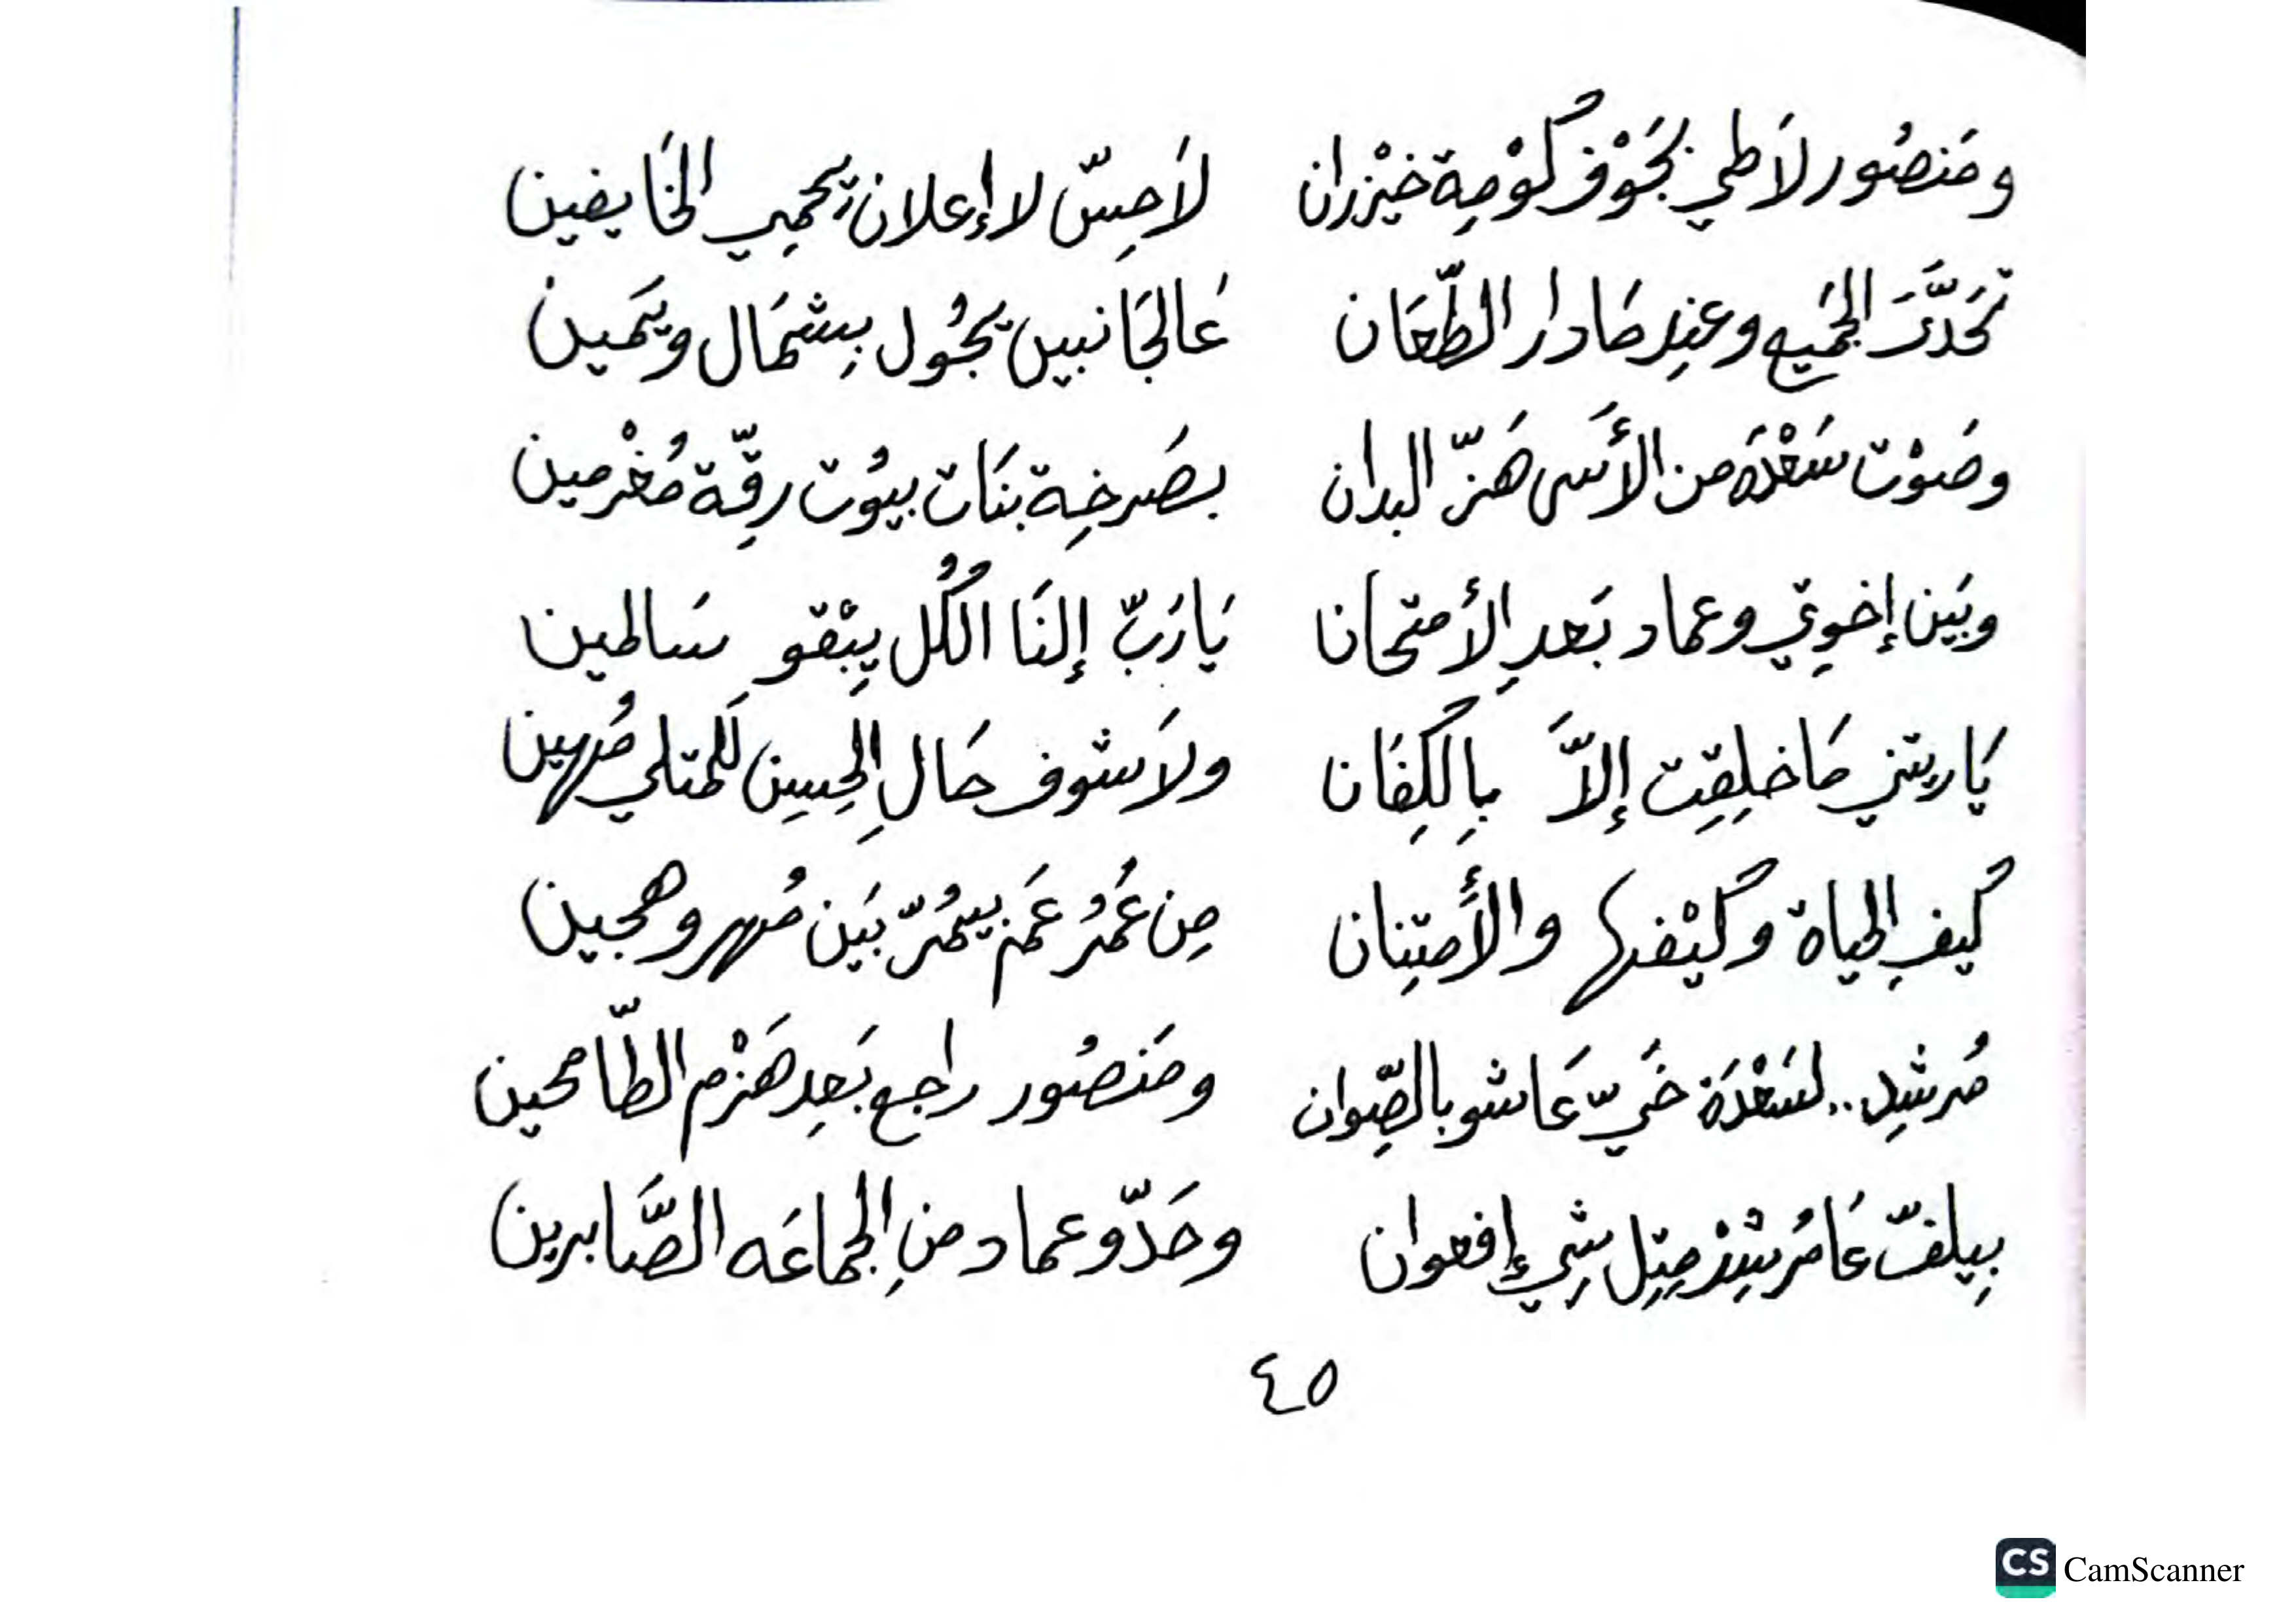 ومَنصُور لاَطي بجَوْف كُوْمِة خيْزران لاَحِسّ لا إعلان يحمِي الخَايفين
تحَدَّرَ الجَميع وعنِد مَا دار الطّعَان عَالجَانبين يجُول بِشمَال ويَمين
وصَوْت سَعْدَة من الأَسى هَزّ البدان بصَرخِة بنَات بيُوت رقِّة مُغْرمين
وبَين إخوتِي وعماد بَعدِ الأمتحان يَارَبّ إلنَا الكُل يِبْقو سَالمين
يَاريتني مَا خلِقِت إلاَّ بِالكِفَان ولاَ شوف حَالِ الحِسِين للمتلي مُهين
كَيفِ الحياة وكَيْفها والأَمتِنان مِن عُمُر عَم يمُرّ بَين مُهر وهجين
مُرشِد.. لسَعْدَة خَيّ عَاشو بالصِّوان ومَنصُور راجع بَعِد هَزْم الطّامحين
بِيلفّ عَامُرشِدْ مِتِل شِي إفعوان وحَدّو عماد منِ الجماعَه الصَّابرين
٤٥
CS CamScanner